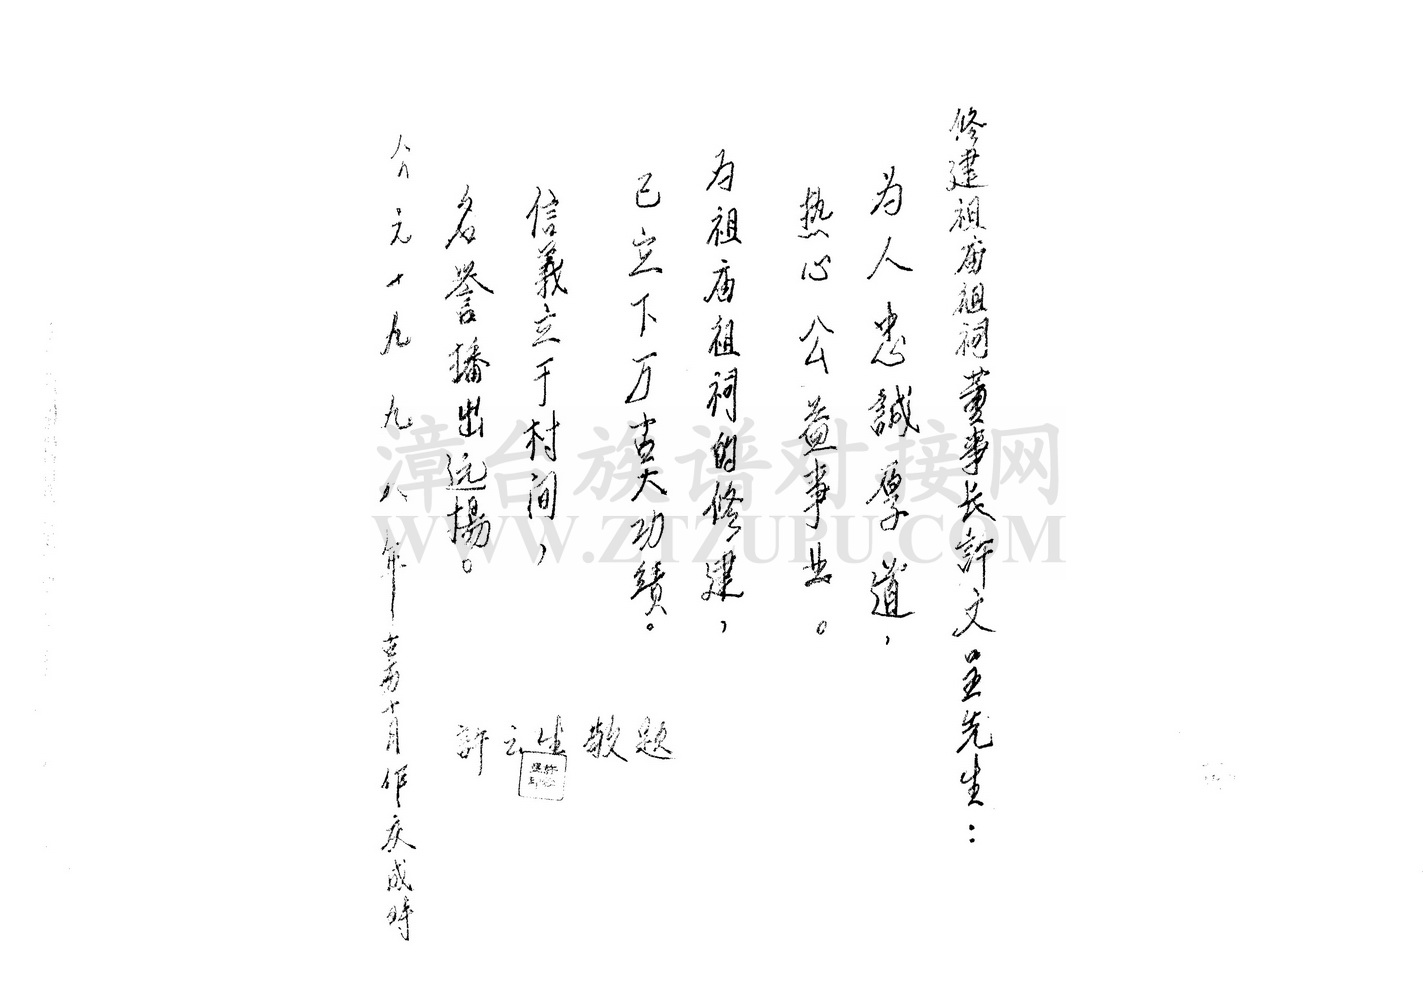 修建祖庙祖祠董事长許文呈先生：
为人忠誠厚道，
热心公益事业。
为祖庙祖祠的修建，
已立下万世功績。
信義立于村间，
名誉播出远揚。
許立生敬题
公元十九九八年 十月作庆成時
漳台族谱对接网
WWW.ZTZUPU.COM